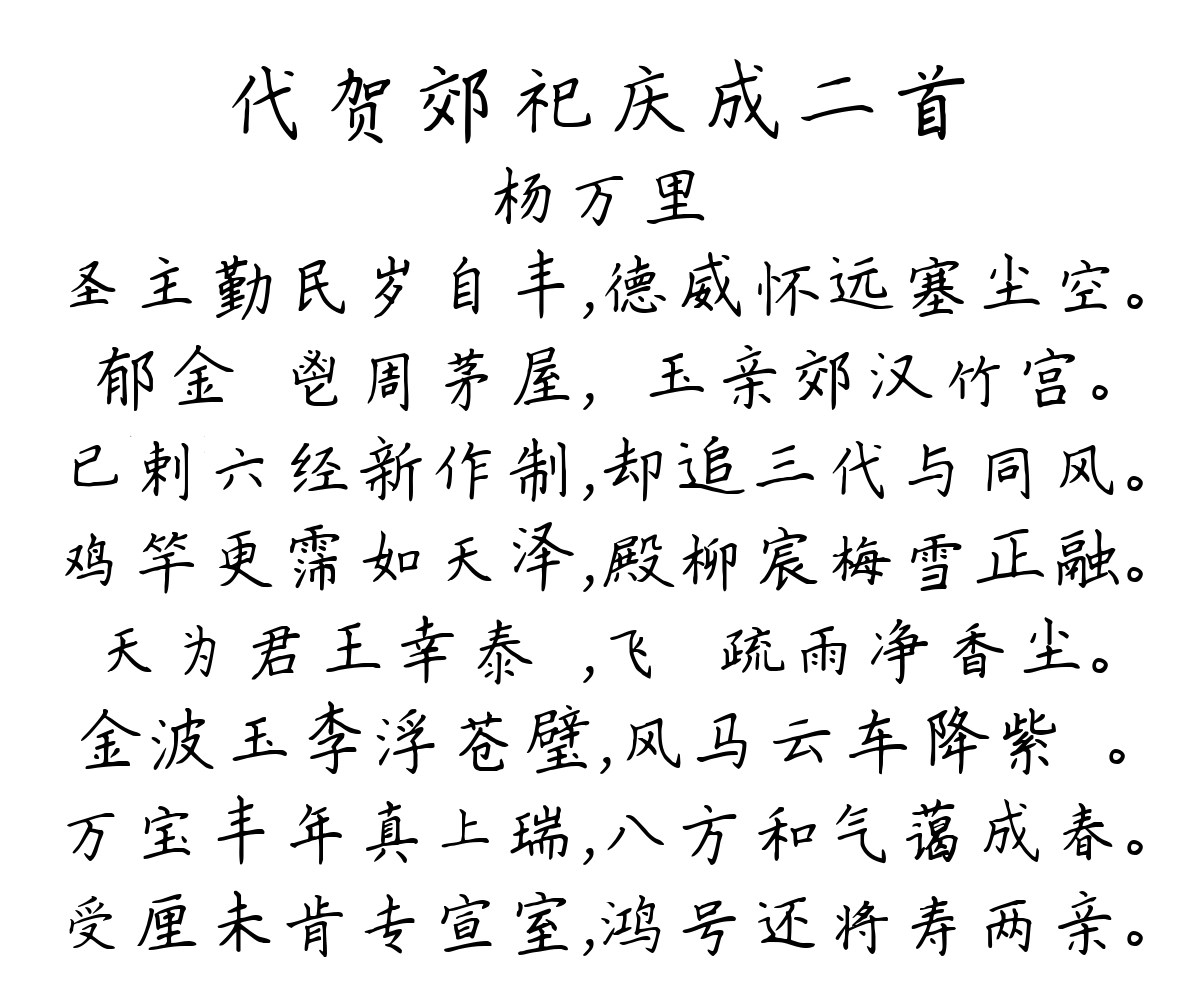 代贺郊祀庆成二首
杨万里
圣主勤民岁自丰,德威怀远塞尘空。
郁金 鬯周茅屋, 玉亲郊汉竹宫。
已剌六经新作制,却追三代与同风。
鸡竿更霈如天泽,殿柳宸梅雪正融。
天为君王幸泰 ,飞 疏雨净香尘。
金波玉李浮苍璧,风马云车降紫 。
万宝丰年真上瑞,八方和气蔼成春。
受厘未肯专宣室,鸿号还将寿两亲。